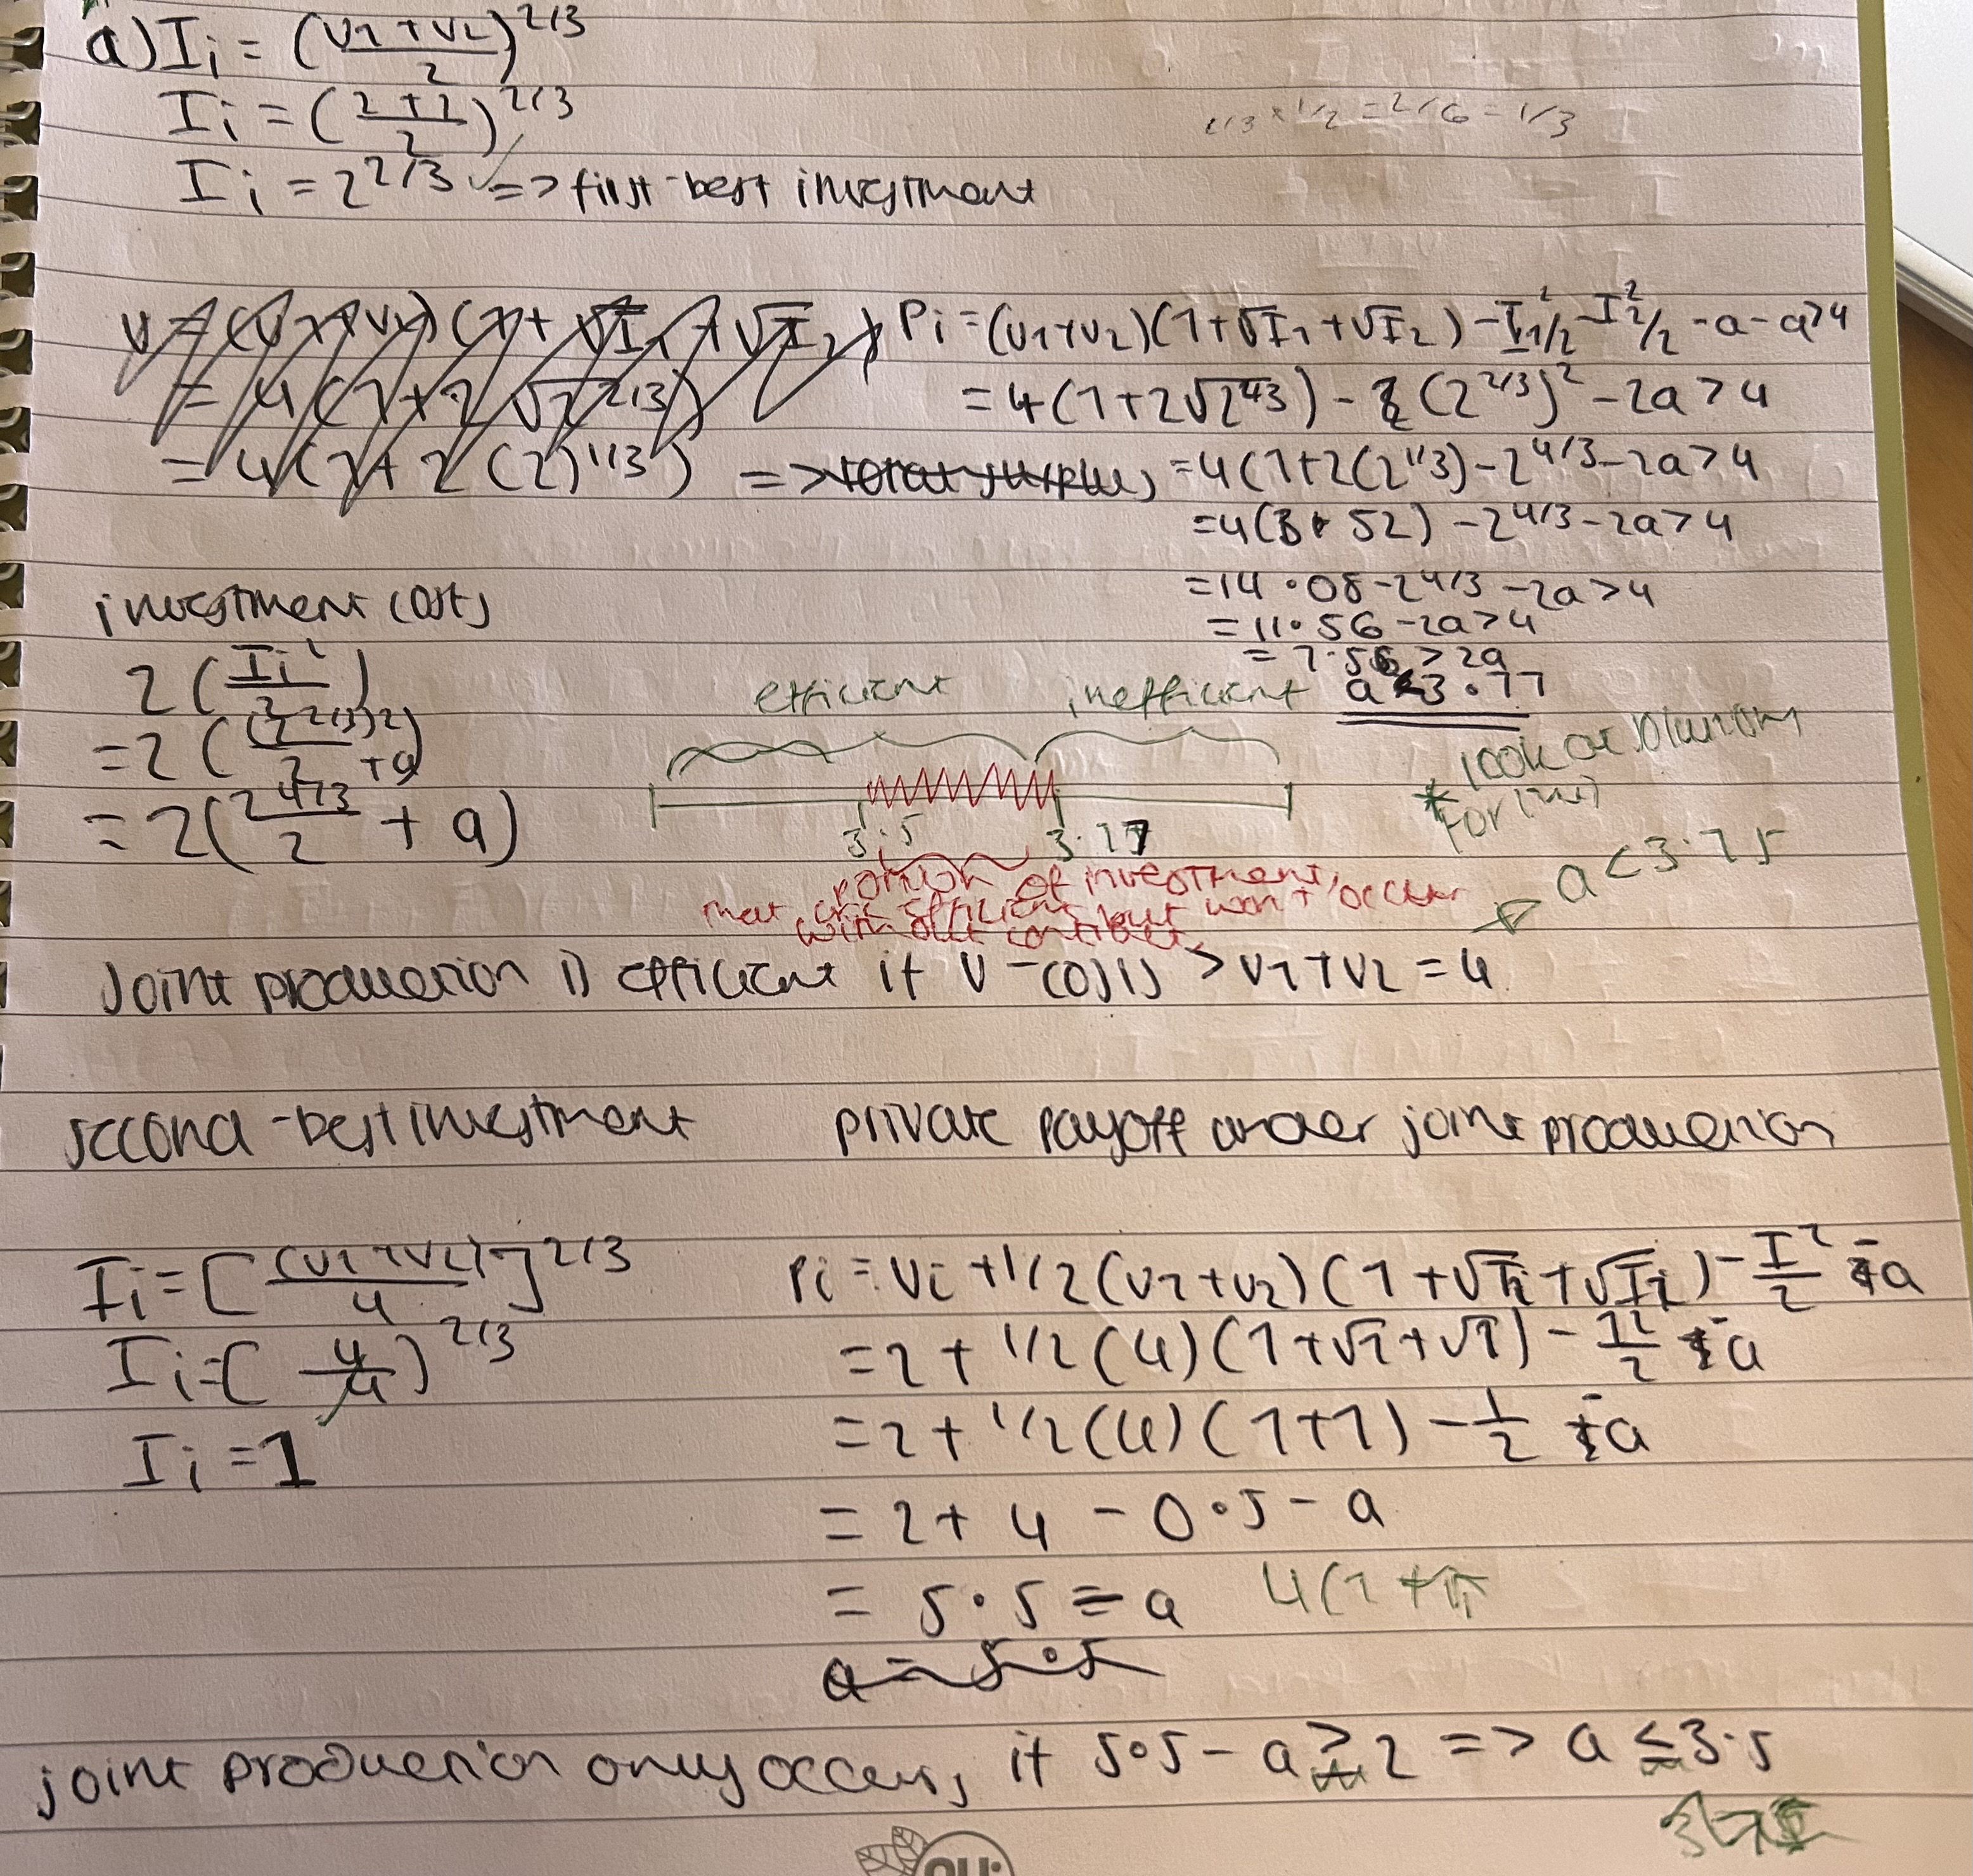 a) Ii = (v1+v2/2)^2/3
Ii = (2+2/2)^2/3
2/3 × 1/2 = 2/6 = 1/3
Ii = 2^2/3 => first-best investment
V = (v1+v2)(1+√I1+√I2)
= 4(1+2√2^2/3)
= 4(1+2(2)^1/3) => total surplus
Pi = (v1+v2)(1+√I1+√I2) - I1^2/2 - I2^2/2 - a - a > 4
= 4(1+2√2^2/3) - 2(2^2/3)^2 - 2a > 4
= 4(1+2(2^1/3) - 2^4/3 - 2a > 4
= 4(3.52) - 2^4/3 - 2a > 4
= 14.08 - 2^4/3 - 2a > 4
= 11.56 - 2a > 4
= 7.56 > 2a
a < 3.77
investment costs
2(Ii^2/2)
= 2((2^2/3)^2/2 + a)
= 2(2^4/3/2 + a)
efficient inefficient
3.5 3.77
portion of investment
that are efficient but won't occur
without contract
* look at solutions
for this
a < 3.75
Joint production is efficient if V - costs > v1+v2 = 4
second-best investment
Ii = [(v1+v2)/4]^2/3
Ii = (4/4)^2/3
Ii = 1
private payoff under joint production
Pi = Vi + 1/2(v1+v2)(1+√Ii+√Ii) - I^2/2 - a
= 2 + 1/2(4)(1+√1+√1) - 1^2/2 - a
= 2 + 1/2(4)(1+1) - 1/2 - a
= 2 + 4 - 0.5 - a
= 5.5 - a
4(1+√
a = 5.5
joint production only occurs if 5.5 - a ≥ 2 => a ≤ 3.5